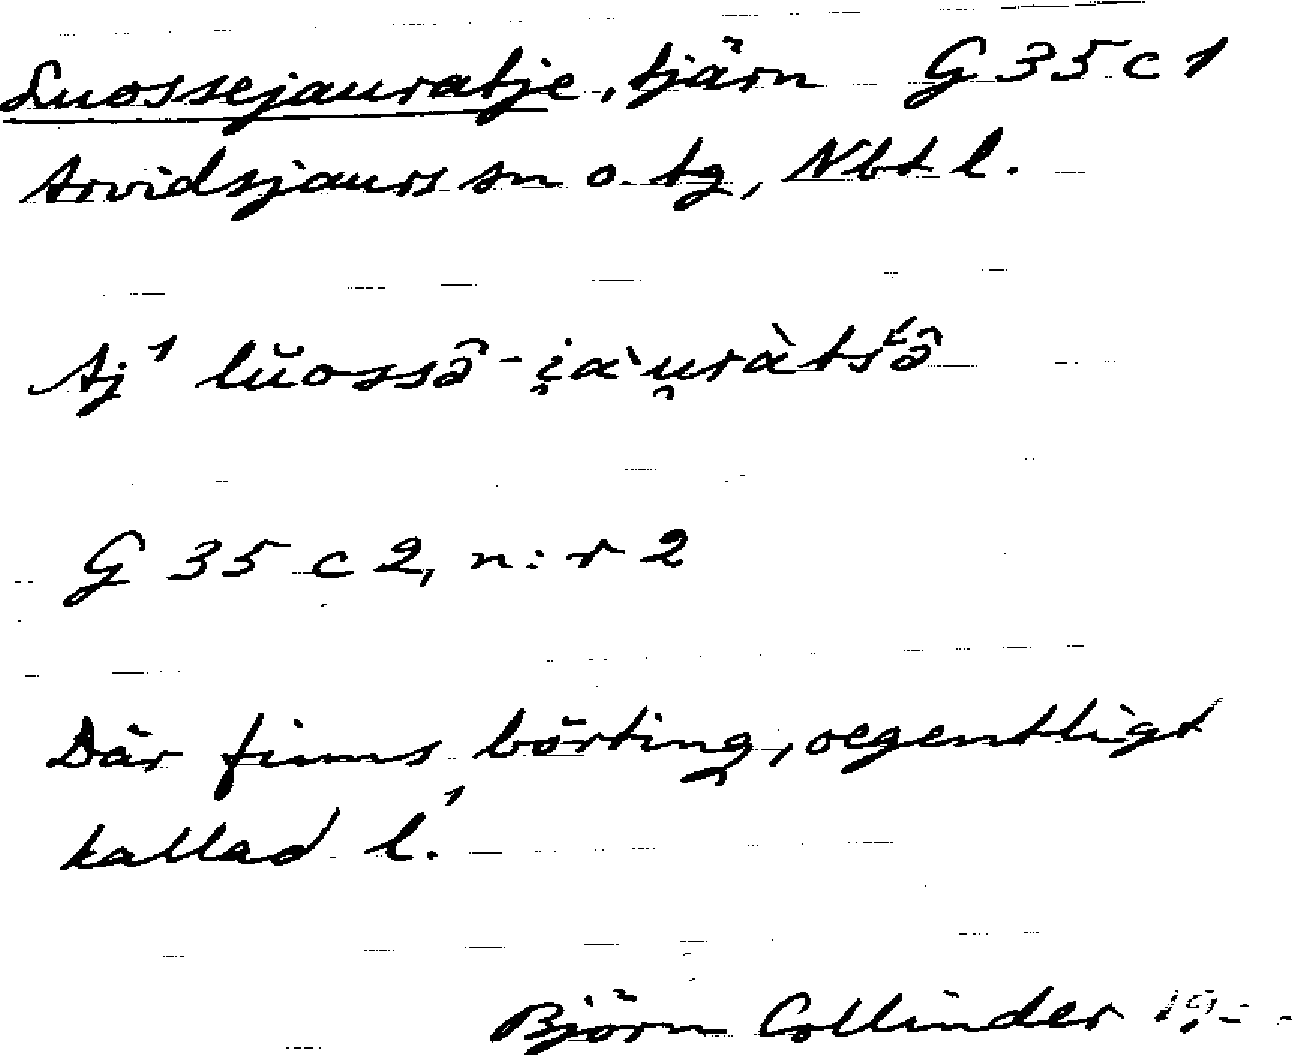 Luossejauratje, tjärn G 35 c 1
Arvidsjaurs sn o. tg, Nbt l.
Aj¹ lŭossə̂ - i̯àu̯ràtsʹə̂
G 35 c 2, n:r 2
Där finns börting, oegentligt
kallad l.¹
Björn Collinder